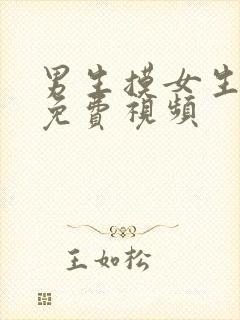 男生摸女生
免費視頻
王如松